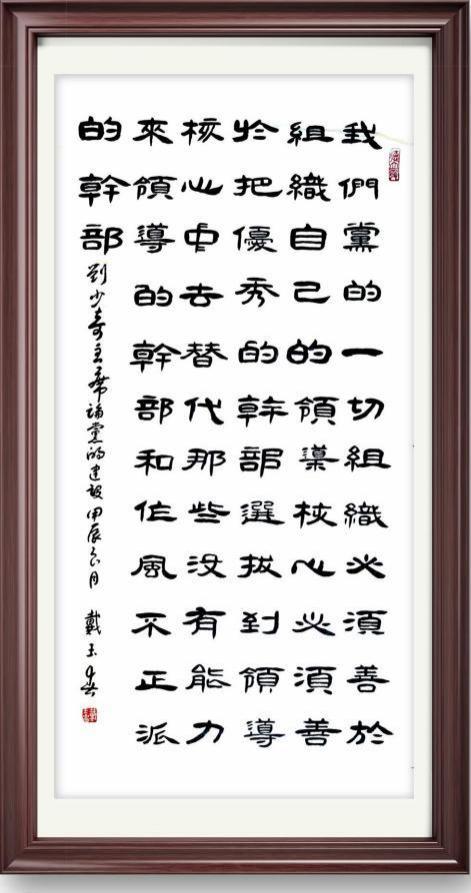 我們黨的一切組織必須善於
組織自己的領導核心必須善
於把優秀的幹部選拔到領導
核心中去替代那些没有能力
來領導的幹部和作風不正派
的幹部
劉少奇主席論黨的建設 甲辰 月 戴玉